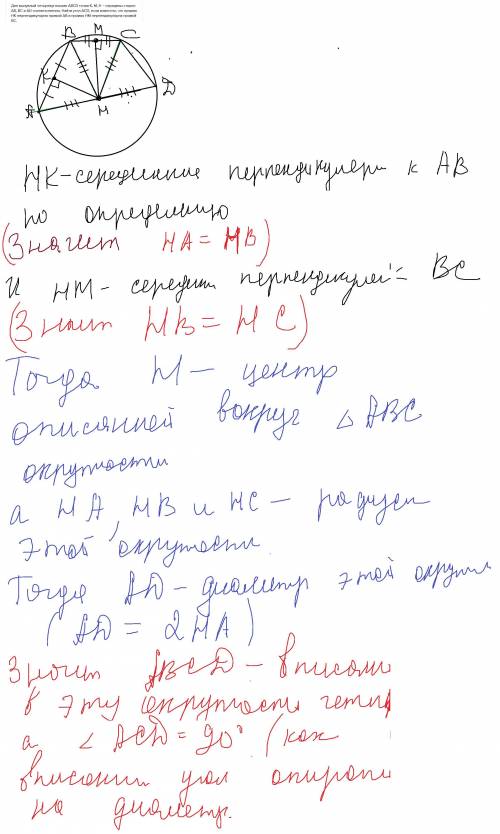 Дан выпуклый четырёхугольник ABCD точки K, M, H – середины сторон
AB, BC и AD соответственно. Найти угол ACD, если известно, что прямая
HK перпендикулярна прямой AB и прямая HM перпендикулярна прямой
BC.
B M C
K
A H D
HK-серединные перпендикуляри к AB
по определению
(Значит HA = HB)
и HM- середин перпендикуляр BC
(Знаит HB = HC)
Тогда H - центр
описанной вокруг △ ABC
окружности
а HA, HB и HC - радиуси
этой окружости.
Тогда AD - диаметр этой окружн
(AD = 2HA)
Значит ABCD - вписани
в эту окружости четир
а ∠ ACD = 90° (как
вписании угол опирати
на диаметр.